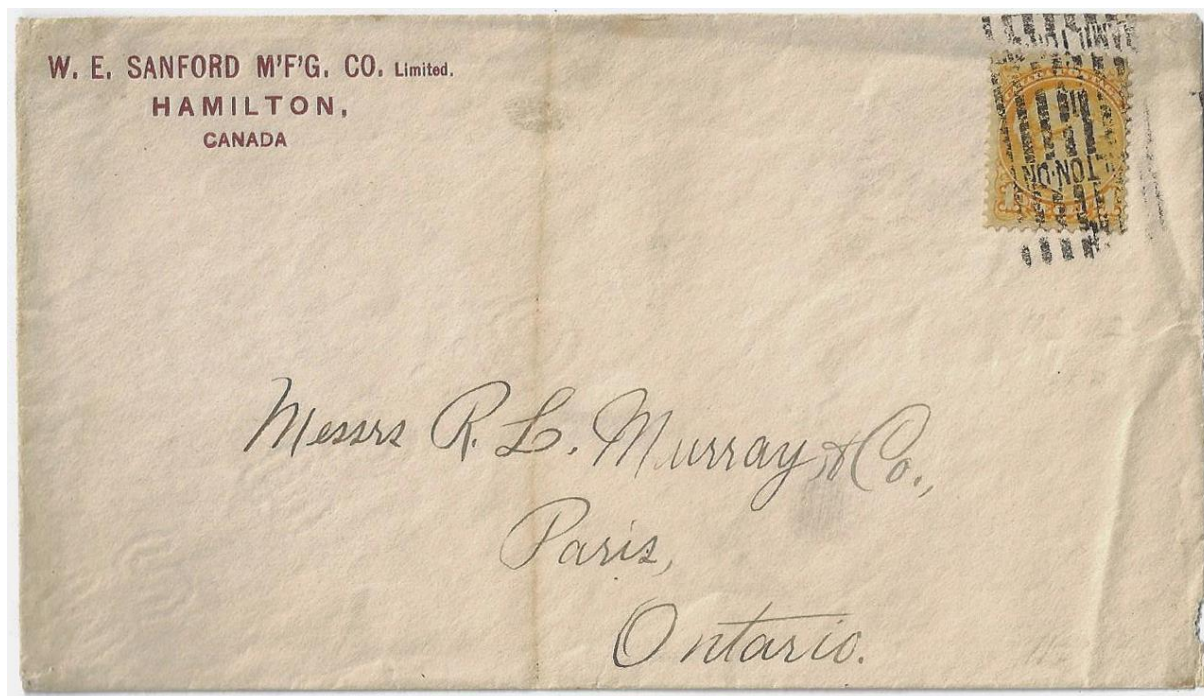 W. E. SANFORD M'F'G. CO. Limited.
HAMILTON,
CANADA
TON·ON
Messrs R. L. Murray & Co.,
Paris,
Ontario.